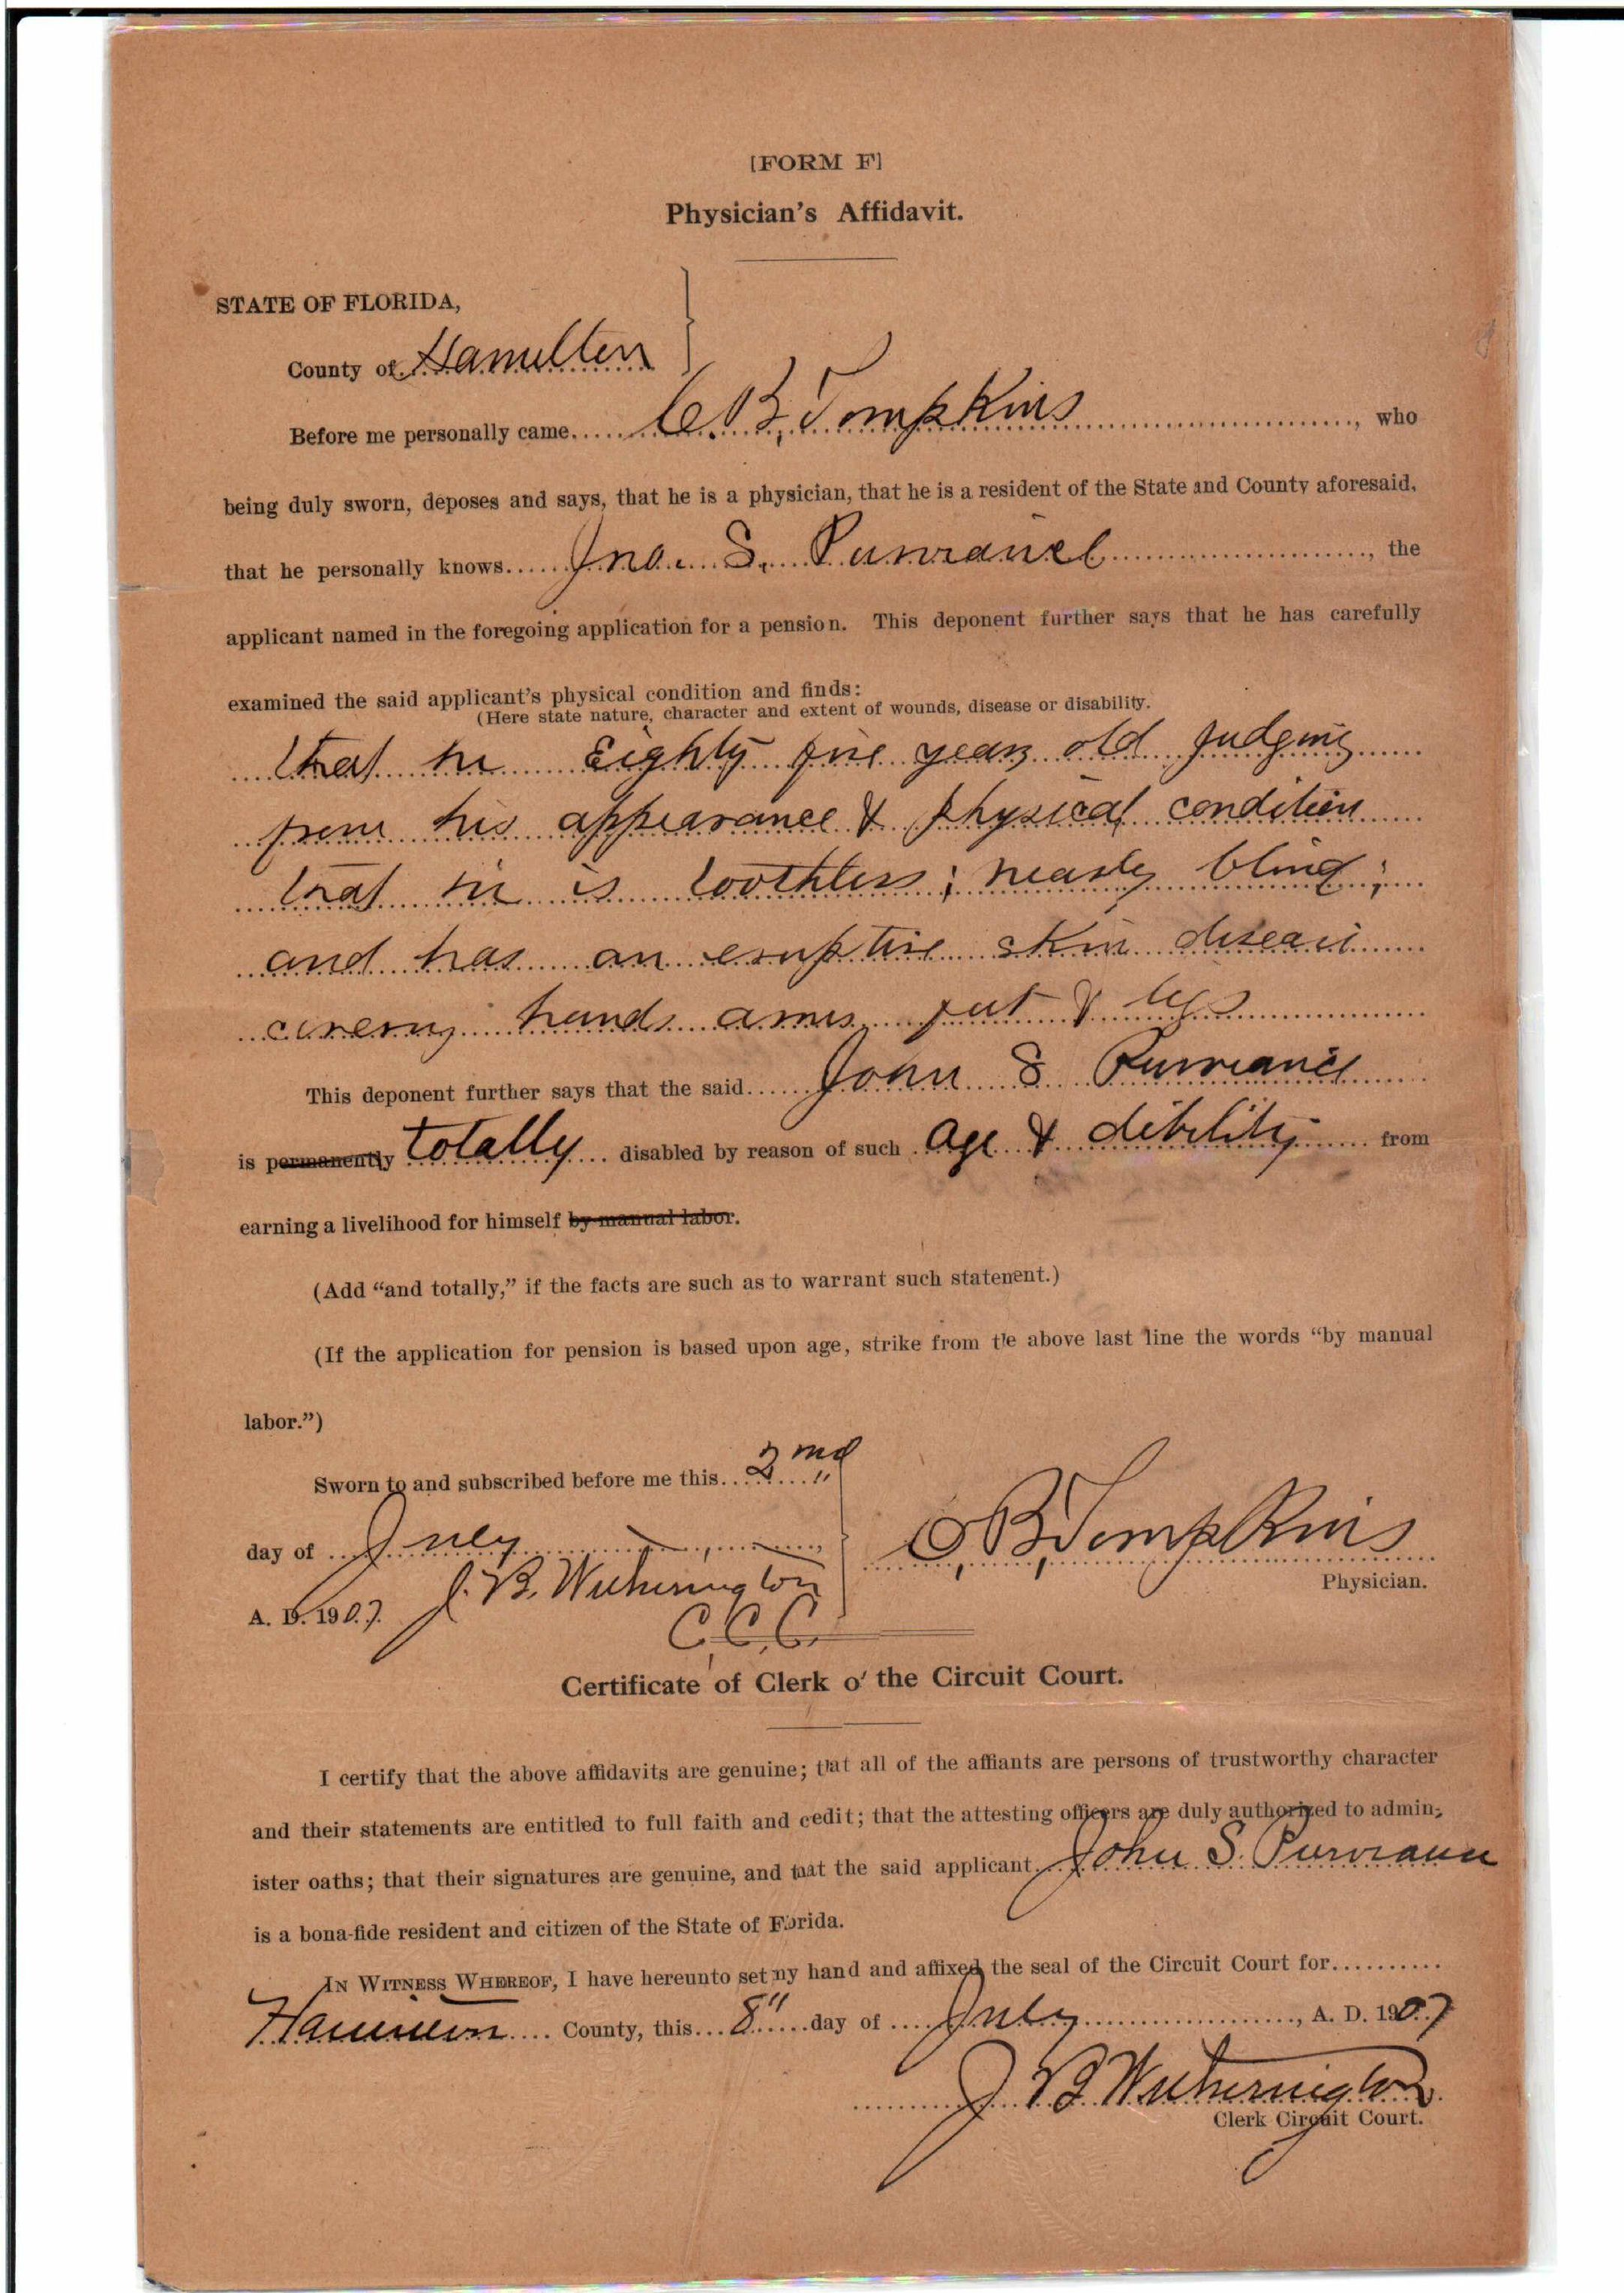 [FORM F]
Physician's Affidavit.
STATE OF FLORIDA,
County of Hamilton
Before me personally came C. B. Tompkins, who
being duly sworn, deposes and says, that he is a physician, that he is a resident of the State and County aforesaid,
that he personally knows Jno. S. Purviance, the
applicant named in the foregoing application for a pension. This deponent further says that he has carefully
examined the said applicant's physical condition and finds:
(Here state nature, character and extent of wounds, disease or disability.
that he Eighty five years old judging
from his appearance & physical condition
that he is toothless; nearly blind;
and has an eruptive skin disease
covering hands arms feet & legs
This deponent further says that the said John S Purviance
is permanently totally disabled by reason of such age & debility from
earning a livelihood for himself by manual labor.
(Add "and totally," if the facts are such as to warrant such statement.)
(If the application for pension is based upon age, strike from the above last line the words "by manual
labor.")
Sworn to and subscribed before me this 2nd
day of July
A. D. 1907. J. B. Witherington
C. C. C.
C. B. Tompkins
Physician.
Certificate of Clerk o' the Circuit Court.
I certify that the above affidavits are genuine; that all of the affiants are persons of trustworthy character
and their statements are entitled to full faith and cedit; that the attesting officers are duly authorized to admin-
ister oaths; that their signatures are genuine, and that the said applicant John S. Purviance
is a bona-fide resident and citizen of the State of Florida.
IN WITNESS WHEREOF, I have hereunto set my hand and affixed the seal of the Circuit Court for
Hamilton County, this 8" day of July, A. D. 1907
J B Witherington
Clerk Circuit Court.